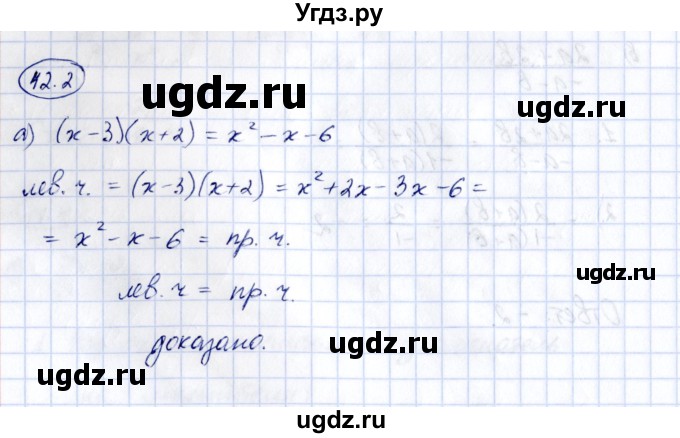 Угдз.ру
42.2
ugdz.ru
ugdz.ru
а) (x-3)(x+2) = x² - x - 6
лев. ч. = (x-3)(x+2) = x² + 2x - 3x - 6 =
= x² - x - 6 = пр. ч.
ugdz.ru
ugdz.ru
лев. ч = пр. ч.
доказано.
ugdz.ru
ugdz.ru
ugdz.ru